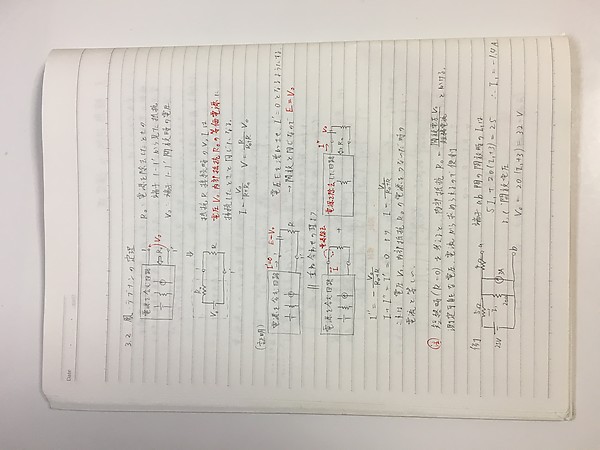 Date
3.2 鳳-テブナンの定理
電源を含む回路
R₀
V₀
R₀: 電源を除去したときの
端子 1-1' から見た抵抗
V₀: 端子 1-1' 開放時の電圧
抵抗 R 接続時の V, I は
電圧 V₀ 内部抵抗 R₀ の等価電源に
接続したときと同じになる.
I = V₀/(R₀+R) V = R/(R₀+R) V₀
(証明)
電源を含む回路
I'=0
E=V₀
R
電圧 E を I'=0 となるようにする
→ 開放と同じなので E=V₀
重ね合わせの理より
電源を含む回路
I
電源除去
+
電源を除去した回路
I''
V₀
R₀
I'' = - V₀/(R₀+R)
I + I'' = I' = 0 より I = V₀/(R₀+R)
これは 電圧 V₀, 内部抵抗 R₀ の電源をつないだ時の
電流と等しい.
注 短絡時 (R=0) を考えると 内部抵抗 R₀ = 開放電圧 V₀/短絡電流 とかける.
測定可能な電圧 電流から求められるので便利
例
5Ω
a
25V
I₁
20Ω
3A
b
端子 ab 間の開放時の I₁ は
5I₁ + 20(I₁+3) = 25 ∴ I₁ = -1.4A
より 開放電圧
V₀ = 20(I₁+3) = 32 V